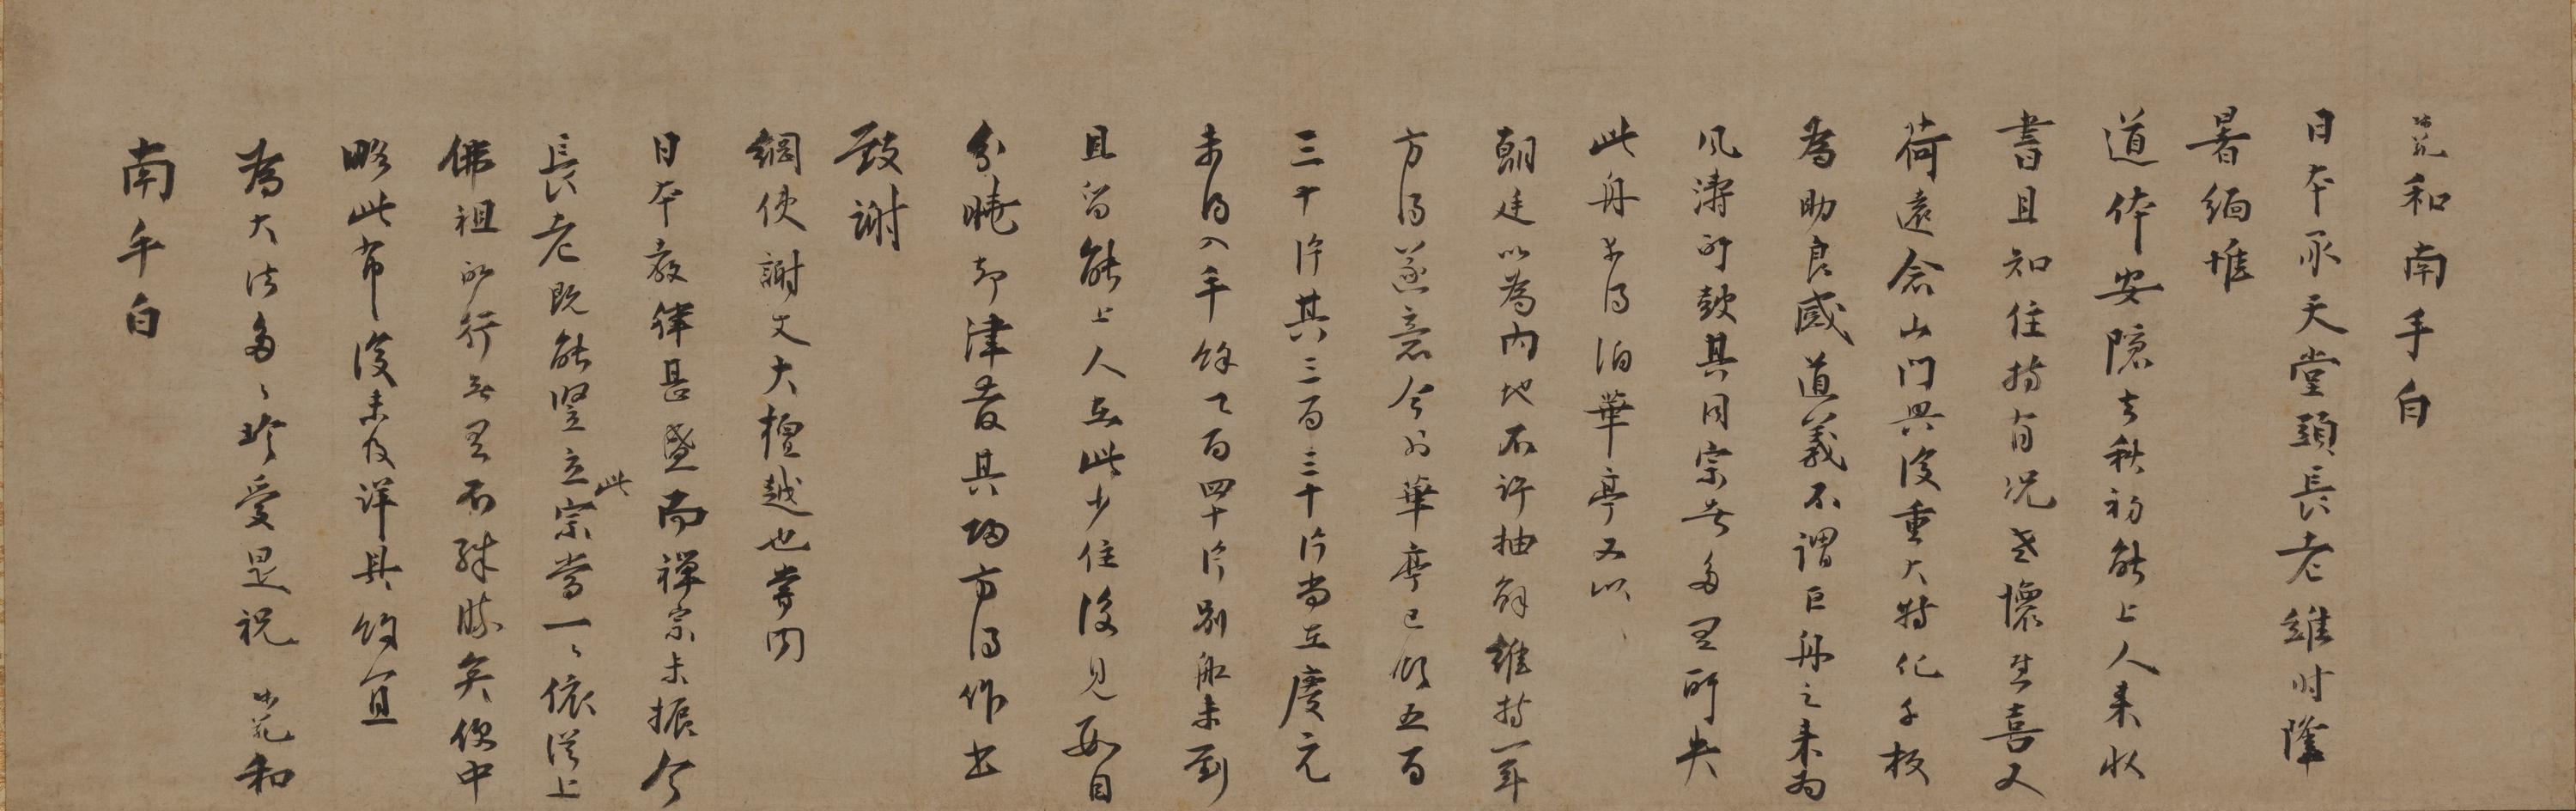 師範和南手白
日本承天堂頭長老維时隆
暑緬惟
道体安隱去秋初能上人来收
書且知住持有况老懷甚喜又
荷遠念山門興復重大特化千板
為助良感道義不謂巨舟之来為
風濤所鼓其同宗者多有所失
此舟幸得泊華亭又以
朝廷以為内地不許抽解維持一年
方得遂意今到華亭已領五百
三十片其三百三十片尚在慶元
未得入手餘乃百四十片別船未到
且留能上人在此少住後見數目
分曉却津發其歸方得作書
致謝
綱使謝丈大檀越也嘗聞
日本教律甚盛而禅宗未振今
長老既能竪立此宗當一一依從上
佛祖所行無有不殊勝矣便中
略此布復未及詳具餘宜
為大法多多珍愛是祝 師範和
南手白